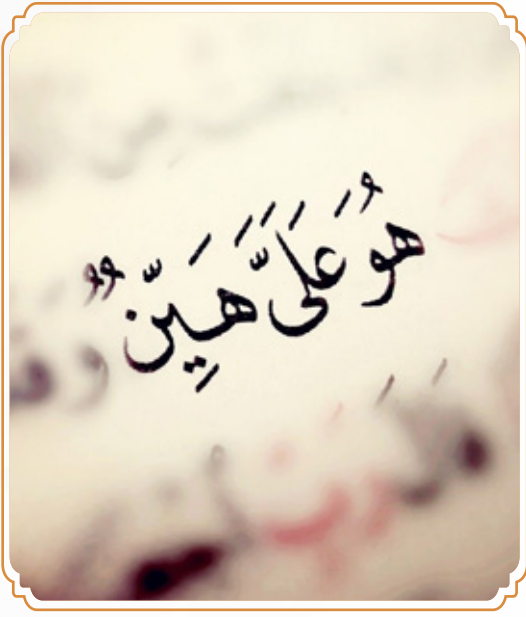 هُوَ عَلَىَّ هَيِّنٌ